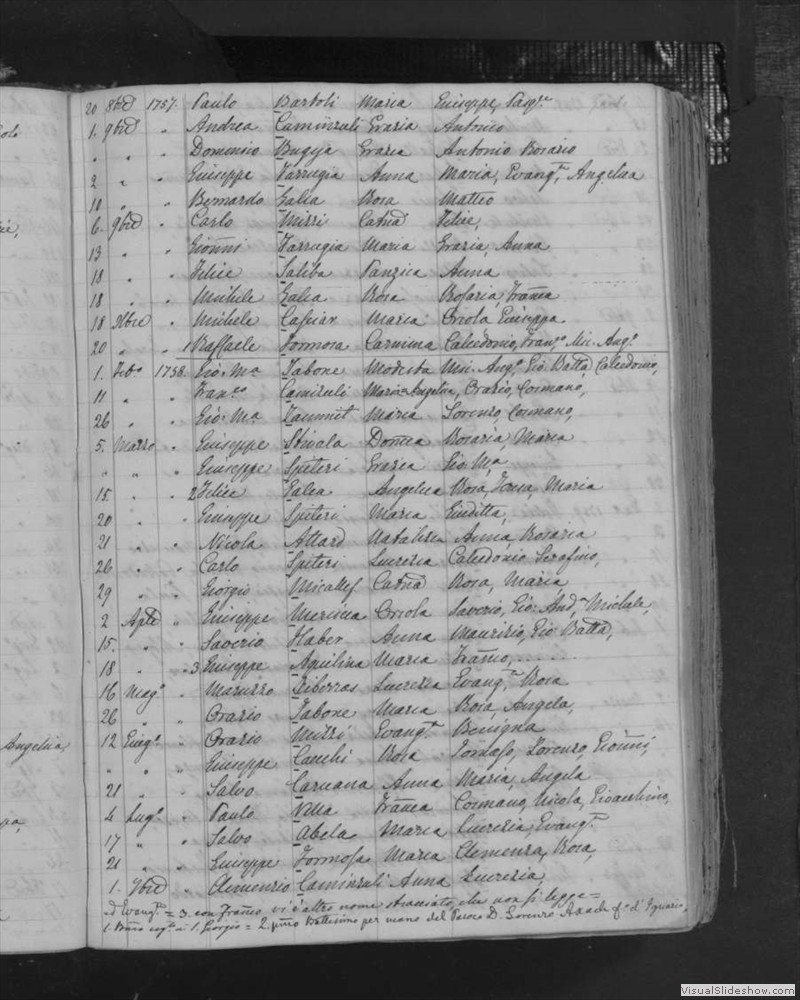 20 8bre 1757. Paulo Bartoli Maria Giuseppe, Pasqle
1. 9bre " Andrea Caminzuli Grazia Antonio
" " " Domenico Bugeja Grazia Antonio Rosario
2 " " Giuseppe Farrugia Anna Maria, Evangta, Angelica
10 " " Bernardo Galea Rosa Matteo
6. 9bre " Carlo Mizzi Catna Felice,
13 " " Gionni Farrugia Maria Grazia, Anna
18 " " Felice Saliba Panzica Anna
18 " " Michele Galea Rosa Rosaria, Franca
18 Xbre " Michele Cassar Maria Orsola Giuseppa
20 " " 1 Raffaele Formosa Carmina Calcedonio, Frano Mic. Ango
1. Febo 1758. Gio: Ma Tabone Modesta Mic. Ango Gio Batta, Calcedonio,
11 " " Franco Camizuli Maria Angelica, Orazio, Cosmano,
26 " " Gio: Ma Zammit Maria Lorenzo, Cosmano,
5. Marzo " Giuseppe Stivala Domca Rosaria, Maria
" " " Giuseppe Spiteri Grazia Gio: Ma
15 " " 2 Felice Galea Angelica Rosa, Maria
20 " " Giuseppe Spiteri Maria Giuditta,
21 " " Nicola Attard Natalizia Anna, Rosaria
26 " " Carlo Spiteri Lucrezia Calcedonio Serafino,
29 " " Giorgio Micallef Catna Rosa, Maria
2 Aple " Giuseppe Mercieca Orsola Saverio, Gio: Anda Michele,
15. " " Saverio Haber Anna Maurizio, Gio Batta,
18 " " 3 Giuseppe Aquilina Maria Franco, . . . . . .
16 Mago " Maruzzo Ribozzas Lucrezia Evangta Rosa
26 " " Orazio Tabone Maria Rosa, Angela,
12 Giugo " Orazio Mizzi Evangta Benigna
" " " Giuseppe Cauchi Rosa Tomaso, Lorenzo, Gionni,
21 " " Salvo Caruana Anna Maria, Angela
4 Lugo " Paulo Vella Franca Cosmano, Nicola, Gioacchino,
17 " " Salvo Abela Maria Lucrezia, Evangta
21 " " Giuseppe Formosa Maria Clemenza, Rosa,
1. 7bre " Clemenzio Caminzuli Anna Lucrezia
Evangta = 3. con Franco vi è altro nome stracciato, che non si legge =
1. Giorgio = 2. primo Battesimo per mano del Paroco D. Lorenzo
Angelica,
VisualSlideshow.com